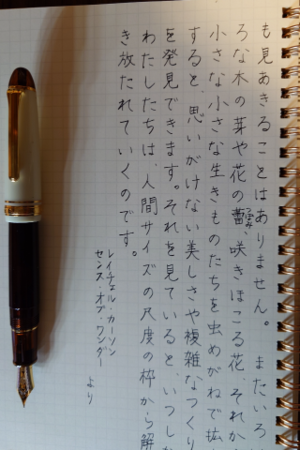 も見あきることはありません。 またいろ
ろな木の芽や花の蕾、咲きほこる花、それか
小さな小さな生きものたちを虫めがねで拡
すると、思いがけない美しさや複雑なつくり
を発見できます。それを見ていると、いつし
わたしたちは、人間サイズの尺度の枠から解
き放たれていくのです。
レイチェル・カーソン
センス・オブ・ワンダー
より